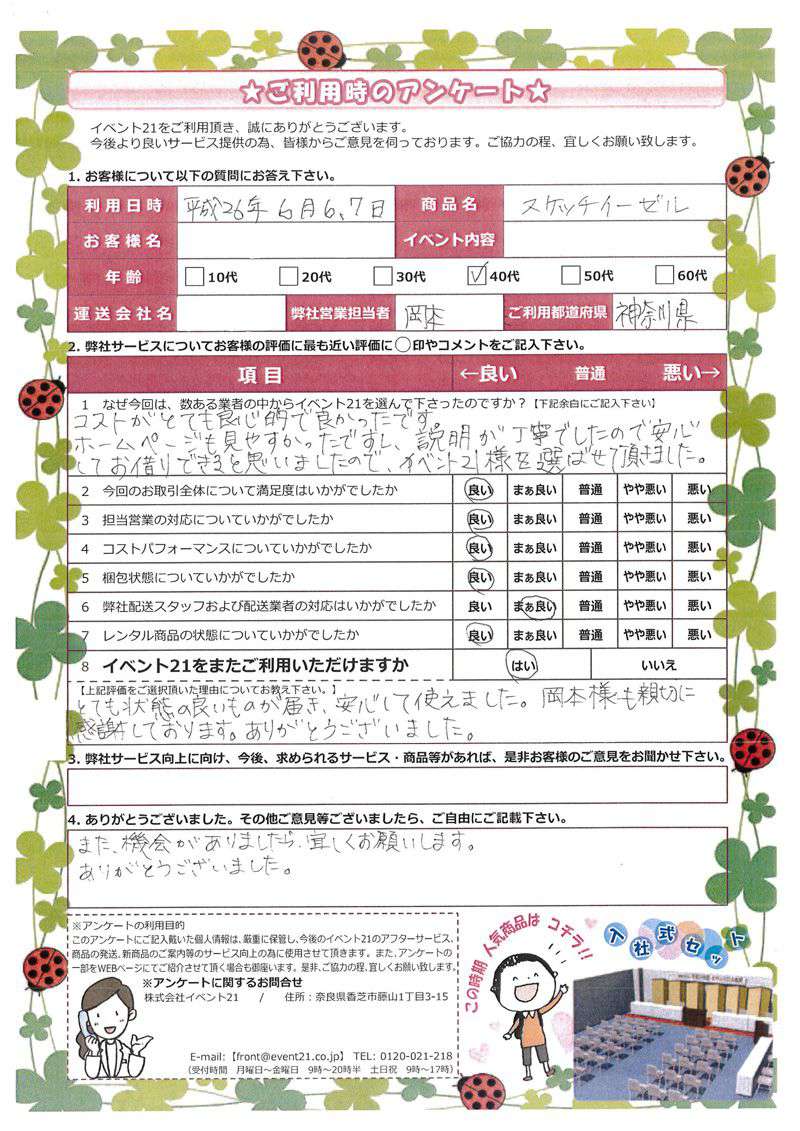 ★ご利用時のアンケート★
イベント21をご利用頂き、誠にありがとうございます。
今後より良いサービス提供の為、皆様からご意見を伺っております。ご協力の程、宜しくお願い致します。
1. お客様について以下の質問にお答え下さい。
利用日時 平成26年6月6,7日 商品名 スケッチイーゼル
お客様名 イベント内容
年齢 □10代 □20代 □30代 ☑40代 □50代 □60代
運送会社名 弊社営業担当者 岡本 ご利用都道府県 神奈川県
2. 弊社サービスについてお客様の評価に最も近い評価に○印やコメントをご記入下さい。
項目 ←良い 普通 悪い→
1 なぜ今回は、数ある業者の中からイベント21を選んで下さったのですか？【下記余白にご記入下さい】
コストがとても良心的で良かったです。
ホームページも見やすかったですし、説明が丁寧でしたので安心
してお借りできると思いましたので、イベント21様を選ばせて頂きました。
2 今回のお取引全体について満足度はいかがでしたか 良い まぁ良い 普通 やや悪い 悪い
3 担当営業の対応についていかがでしたか 良い まぁ良い 普通 やや悪い 悪い
4 コストパフォーマンスについていかがでしたか 良い まぁ良い 普通 やや悪い 悪い
5 梱包状態についていかがでしたか 良い まぁ良い 普通 やや悪い 悪い
6 弊社配送スタッフおよび配送業者の対応はいかがでしたか 良い まぁ良い 普通 やや悪い 悪い
7 レンタル商品の状態についていかがでしたか 良い まぁ良い 普通 やや悪い 悪い
8 イベント21をまたご利用いただけますか はい いいえ
【上記評価をご選択頂いた理由についてお教え下さい。】
とても状態の良いものが届き、安心して使えました。岡本様も親切に
感謝しております。ありがとうございました。
3. 弊社サービス向上に向け、今後、求められるサービス・商品等があれば、是非お客様のご意見をお聞かせ下さい。
4. ありがとうございました。その他ご意見等ございましたら、ご自由にご記載下さい。
また、機会がありましたら、宜しくお願いします。
ありがとうございました。
※アンケートの利用目的
このアンケートにご記入戴いた個人情報は、厳重に保管し、今後のイベント21のアフターサービス、
商品の発送、新商品のご案内等のサービス向上の為に使用させて頂きます。また、アンケートの
一部をWEBページにてご紹介させて頂く場合も御座います。是非、ご協力の程、宜しくお願い致します。
※アンケートに関するお問合せ
株式会社イベント21 / 住所：奈良県香芝市藤山1丁目3-15
E-mail:【front@event21.co.jp】 TEL: 0120-021-218
（受付時間 月曜日～金曜日 9時～20時半 土日祝 9時～17時）
この時期 人気商品は コチラ!!
入社式セット